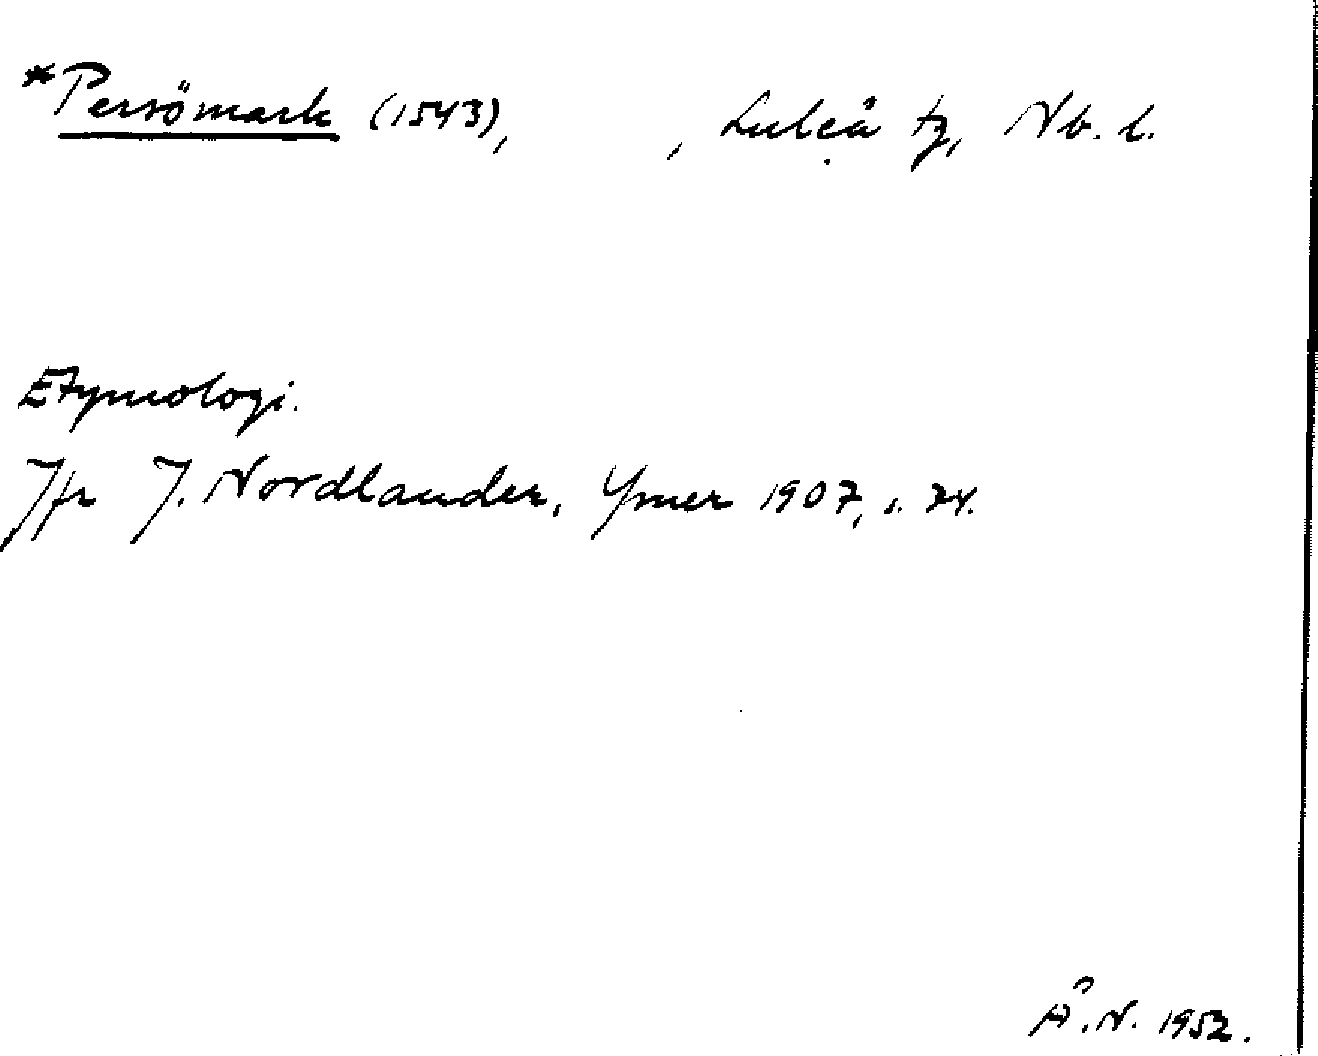 *Persömark (1543), , Luleå tg, Nb. l.
Etymologi.
Jfr J. Nordlander, Ymer 1907, s. 24.
Å.N. 1952.